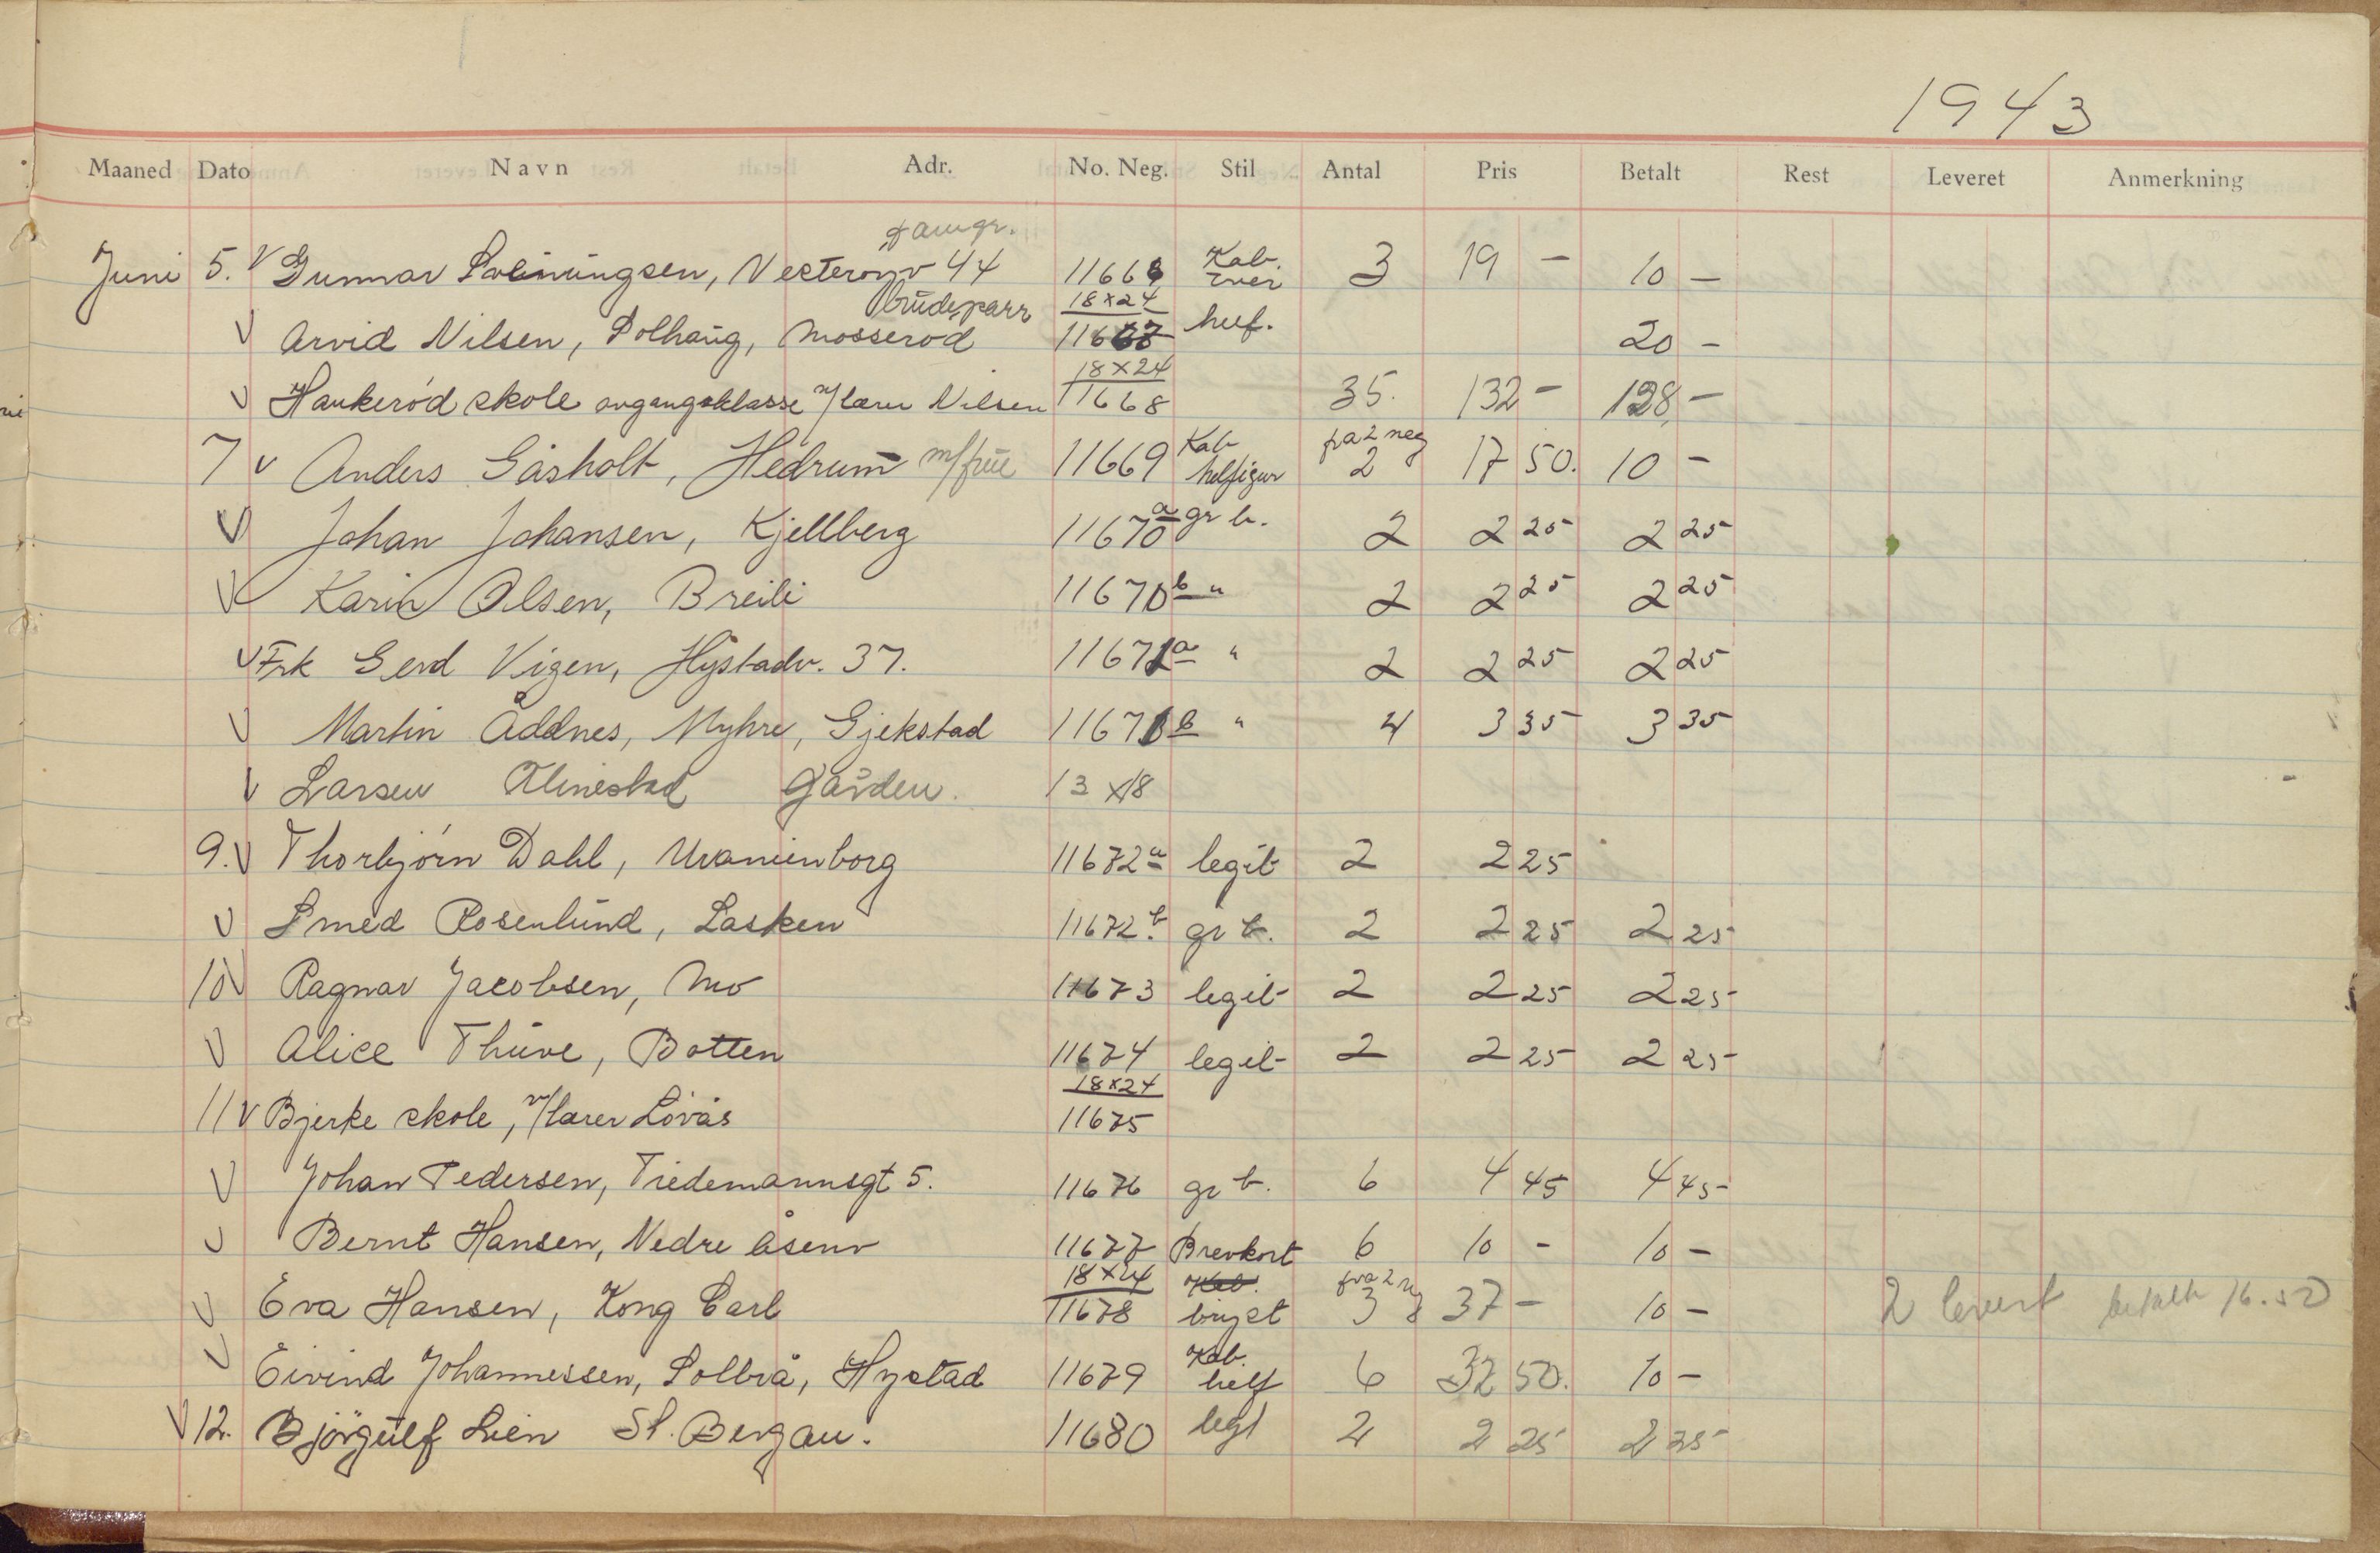 1943
Maaned Dato Navn Adr. No. Neg. Stil Antal Pris Betalt Rest Leveret Anmerkning
famgr.
Juni 5. V Gunnar 44 11666 Kab. 3 19 - 10 -
brudeparr 18x24
V Arvid Nilsen, Solhaug, Mosserød 11667 huf. 20 -
18x24
V Haukerød skole avgangsklasse m/lærer Nilsen 11668 35. 132 - 128,-
7 V Anders Gåsholt, Hedrum m/frue 11669 Kab helfigur fra 2 neg 2 17 50. 10 -
V Johan Johansen, Kjellberg 11670 a gr b. 2 2 25 2 25
V Karin Olsen, Breili 11670 b " 2 2 25 2 25
V Frk Gerd Vigen, Hystadv. 37. 11671 a " 2 2 25 2 25
V Martin Åddnes, Myhre, Gjekstad 11671 b " 4 3 35 3 35
V Larsen Gården. 13x18
9. V Thorbjørn Dahl, Uranienborg 11672 a legit 2 2 25
V Smed Rosenlund, Lasken 11672 b. gr b. 2 2 25 2 25
10 V Ragnar Jacobsen, Mo 11673 legit 2 2 25 2 25
V Alice Thuve, Botten 11674 legit 2 2 25 2 25
18x24
11 V Bjerke skole, m/lærer Løvås 11675
V Johan Pedersen, Tiedemannsgt 5. 11676 gr b. 6 4 45 4 45
V Bernt Hansen, Nedre Åsenv 11677 Brevkort 6 10 - 10 -
18x24 Kab. fra 2 neg
V Eva Hansen, Kong Carl 11678 bryst 3 37 - 10 - 2 levert betalt 16.50
V Eivind Johannessen, Solbrå, Hystad 11679 Kab. helf 6 32 50. 10 -
V 12. Bjørgulf Lien St. Bergan. 11680 legt 2 2 25 2 25